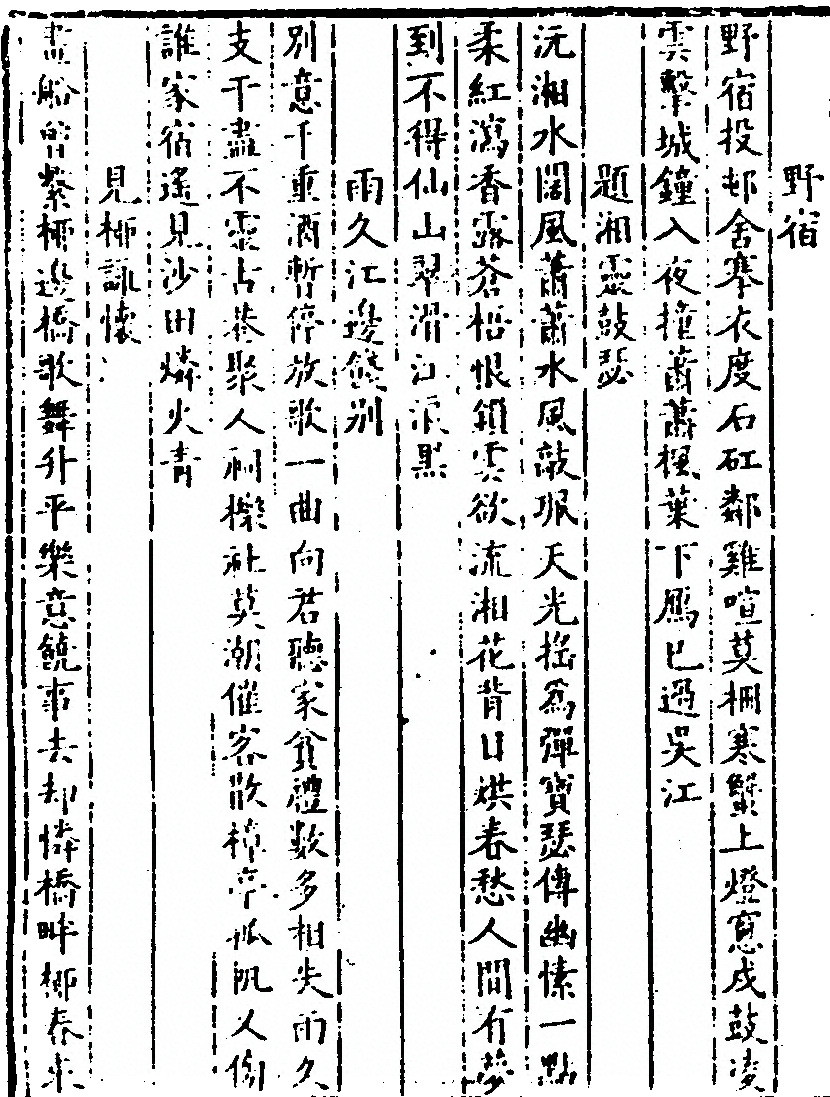 野宿
野宿投邨舍搴衣度石矼鄰雞喧莫柵寒蟹上燈窓戍鼓凌
雲擊城鐘入夜撞蕭蕭楓葉下鴈已過吳江
題湘靈鼓瑟
沅湘水闊風蕭蕭水風敲珮天光搖為彈寶瑟傳幽愫一點
柔紅瀉香露蒼梧恨鎖雲欲流湘花背日烘春愁人間有夢
到不得仙山翠滑江浪黑
雨久江邊餞別
別意千重酒暫停放歌一曲向君聽家貧禮數多相失雨久
支干盡不靈古巷聚人祠櫟社莫潮催客散樟亭孤帆又傍
誰家宿遙見沙田燐火青
見柳詠懷
畫船曾繫柳邊橋歌舞升平樂意饒事去却憐橋畔柳春來